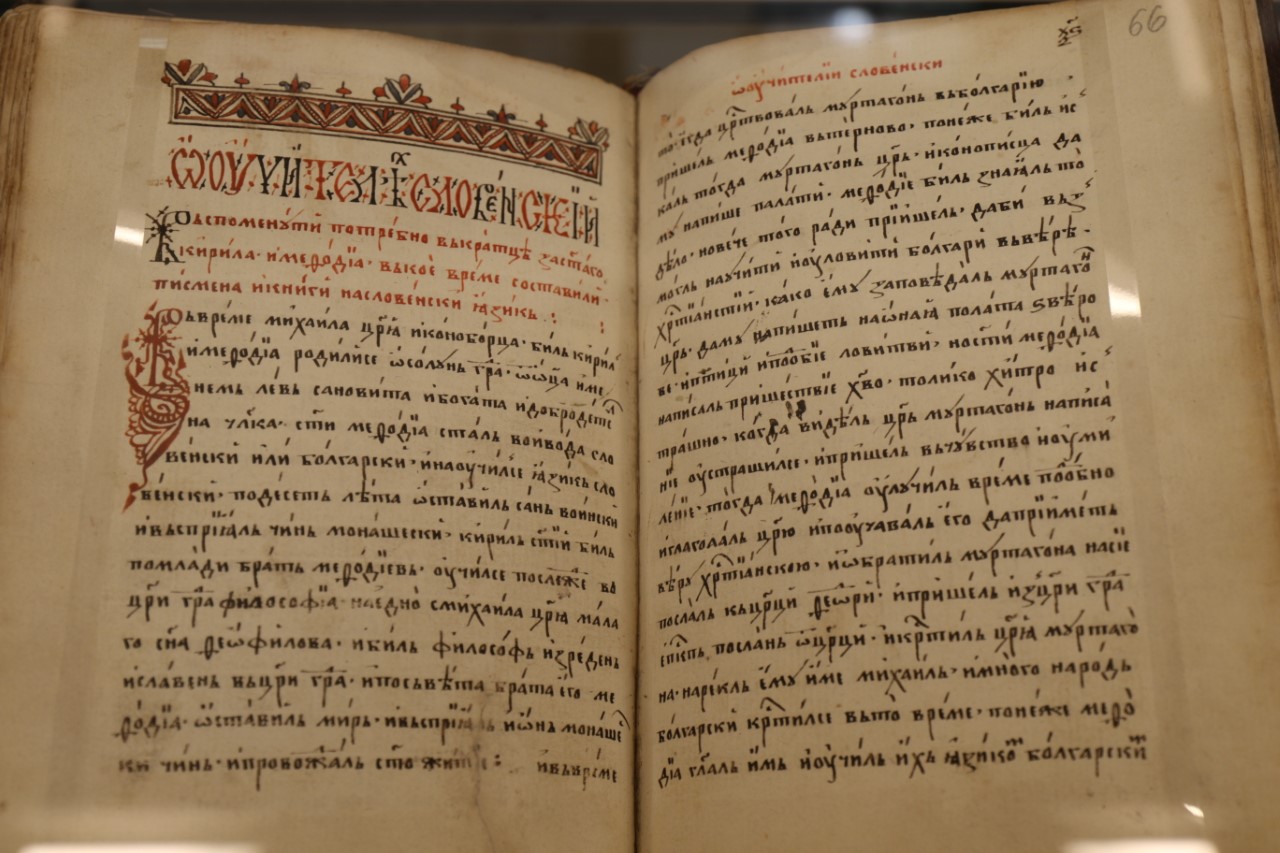 Ѡ оучи́телѣⷯ слове́нскїй
Въспоменꙋ́ти потре́бно въкра́тцѣ за ст҃а́го
ки́рила· и҆меѳо́дїа· въкоѐ вре́ме соста́вили·
пи́смена и҆кни́ги насловѣ́нски ꙗ҆зи́къ:
Въвре́ме миха́ила цр҃ꙗ и҆конобо́рца· би́лъ ки́риⷧ
и҆меѳо́дїа роди́лисе ѿ солꙋ́нь гра́ⷣ· ѿ ѻ҆ца̀ и҆ме
немъ ле́въ санови́та и҆бога́та и҆доброде́теⷧ
на чл҃ка· ст҃и меѳо́дїа ста́лъ во́йвода сло
ве́нски и҆ли бо́лгарски· и҆наоучи́лсе ꙗ҆зи́къ сло
ве́нски· подесеть лѣ́та ѡ҆ста́вилъ са́нь во́ински
и҆въспрїа́лъ чи́нь мона́шески· кири́лъ ст҃и́й би́лъ
помла́ди бра́тъ меѳо́дїевъ· оу҆чи́лсе послеⷤде во
цр҃и гра́ⷣ філосо́фїа· наедно̀ сми́хаила цр҃ꙗ ма́ла
го сн҃а ѳеѡ́филова· и҆би́лъ філосо́фъ и҆зре́денъ
и҆сла́венъ въцр҃и гра́ⷣ· и҆посъвѣ́та бра́та е҆го ме
ѳо́дїа· ѡ҆ста́вилъ ми́ръ· и҆въспрїа́лъ и҆ѡ́нъ мона́шеⷭ
ки чи́нь· и҆провожда́лъ ст҃о житїе: и҆въвре́ме
66
Ѡ оучи́телїй слове́нски
то· е҆гда̀ цр҃ствовалъ мꙋртаго́нь въболга́рїю
прише́лъ меѳо́дїа въте́рново· поне́же би́лъ и҆с
ка́лъ то́гда мꙋртаго́нь цр҃ъ· и҆конопи́сца да
мꙋ̀ напи́ше пала́ти· меѳо́дїе би́лъ зна́ꙗлъ то̀
дѣ́ло· нове́че то́го ра́ди прїише́лъ· дабѝ въз
мо́глъ научи́ти и҆оулови́ти бо́лгари въвѣ́рꙋ
хрⷭ҇тїа́нстїй· ка́ко е҆мꙋ̀ заповѣ́далъ мꙋртаго́ⷩ
цр҃ъ· дамꙋ̀ напи́шетъ наѡ҆нꙗ̀ пола́та ѕвѣ́ро
ве· и҆пти́ций и҆подо́бїе лови́тви· но ст҃и меѳо́дїа
написа́лъ прише́ствїе хв҃о· толи́ко хи́тро и҆с
тра́шно· ко́гда ви́дѣлъ цр҃ъ мꙋртаго́нь написа́
нїе оу҆страши́лсе· и҆прише́лъ въчꙋ́вство и҆оу҆ми
ле́нїе· то́гда меѳо́дїа оу҆лꙋчи́лъ вре́ме подо́бно
и҆глаго́лалъ цр҃ю и҆поꙋча́валъ е҆го̀ да прїйметъ
вѣ́рꙋ хрⷭ҇тїа́нскою· и҆ѡ҆брати́лъ мꙋртаго́на насїе
посла́лъ къцр҃ци ѳео҆дѡ́ри· и҆прише́лъ и҆зцр҃и гра́ⷣ
е҆пⷭ҇кпъ посла́нъ ѿцр҃ци· и҆крⷭ҇ти́лъ цр҃ꙗ мꙋртаго
на· наре́клъ е҆мꙋ̀ и҆ме миха́илъ· и҆мно́го наро́дъ
бо́лгарски крⷭ҇ти́лсе въто̀ вре́ме· поне́же меѳо́
дїа гл҃алъ и҆мъ и҆оучи́лъ и҆хъ ꙗ҆зи́коⷨ бо́лгарскиⷨ